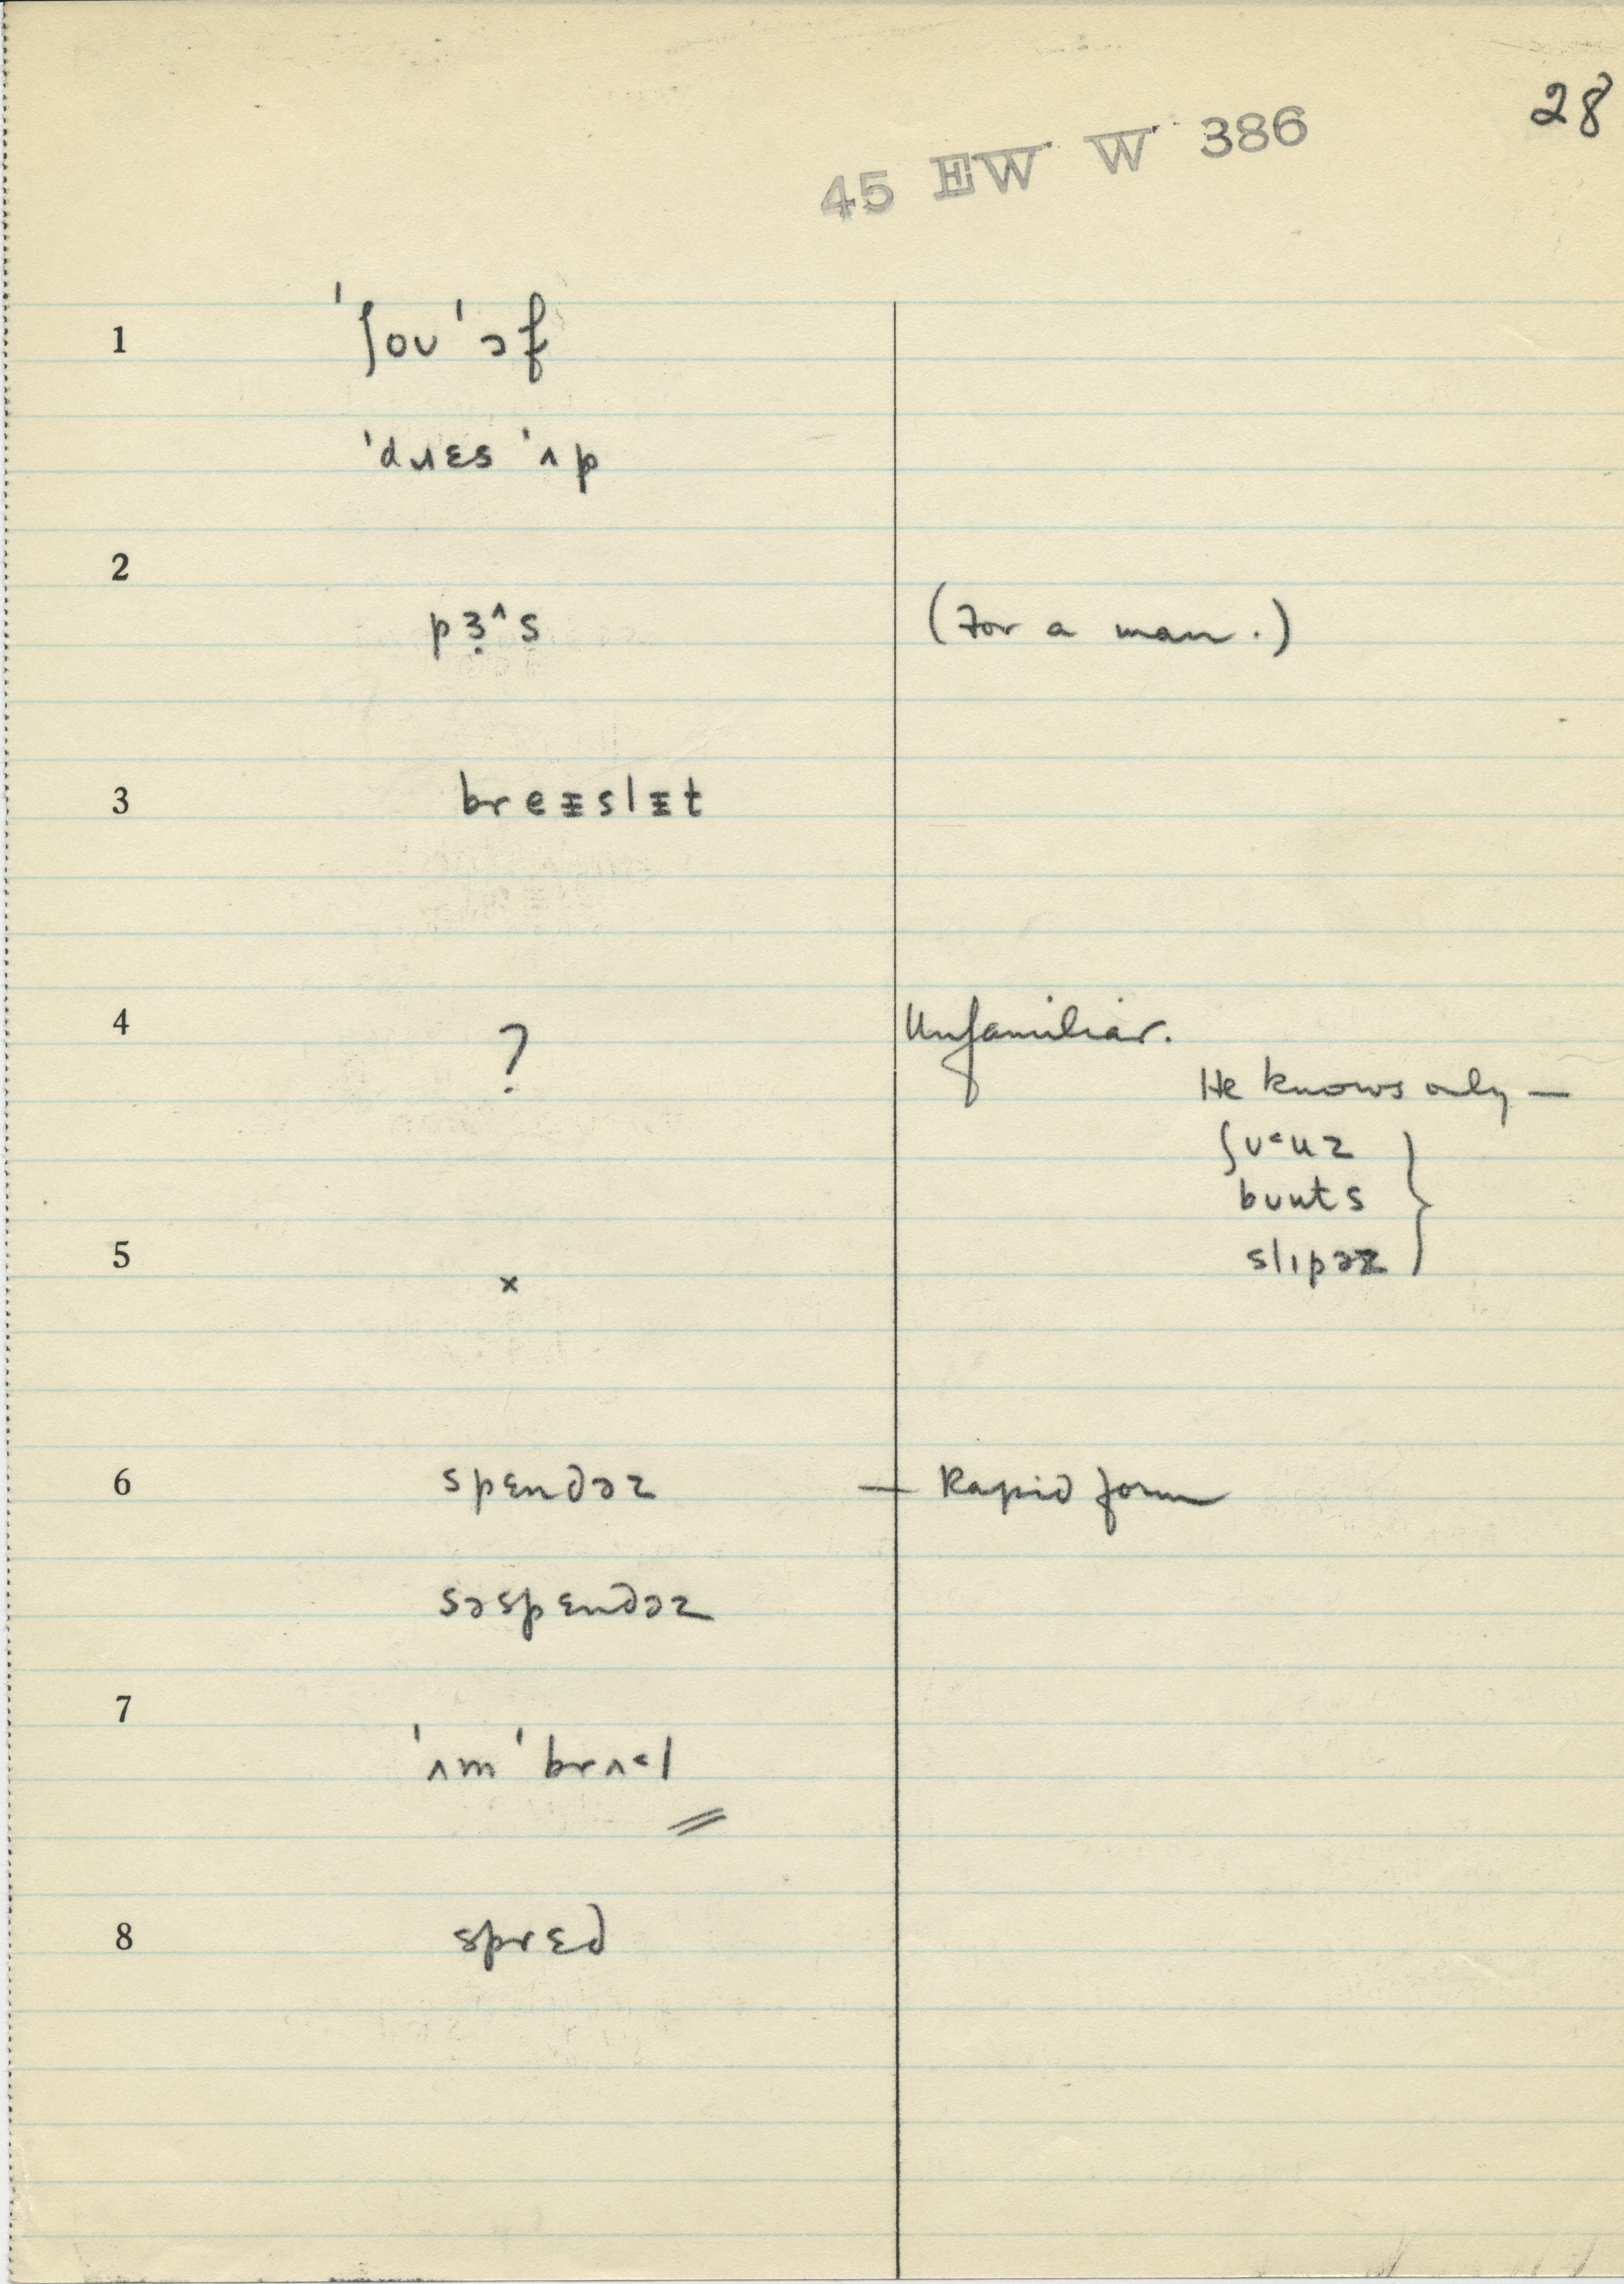 28
45 EW W 386
1 ˈʃoʊˈɔf
ˈdɹɛsˈʌp
2
pɜ̣^s (For a man.)
3 breᵻslᵻt
4 ? Unfamiliar.
He knows only —
ʃʊ<uz
bʊuts
5 × slɪpəz
6 spɛndəz — Rapid form
səspɛndəz
7
ˈʌmˈbrʌ<l
8 sprɛd